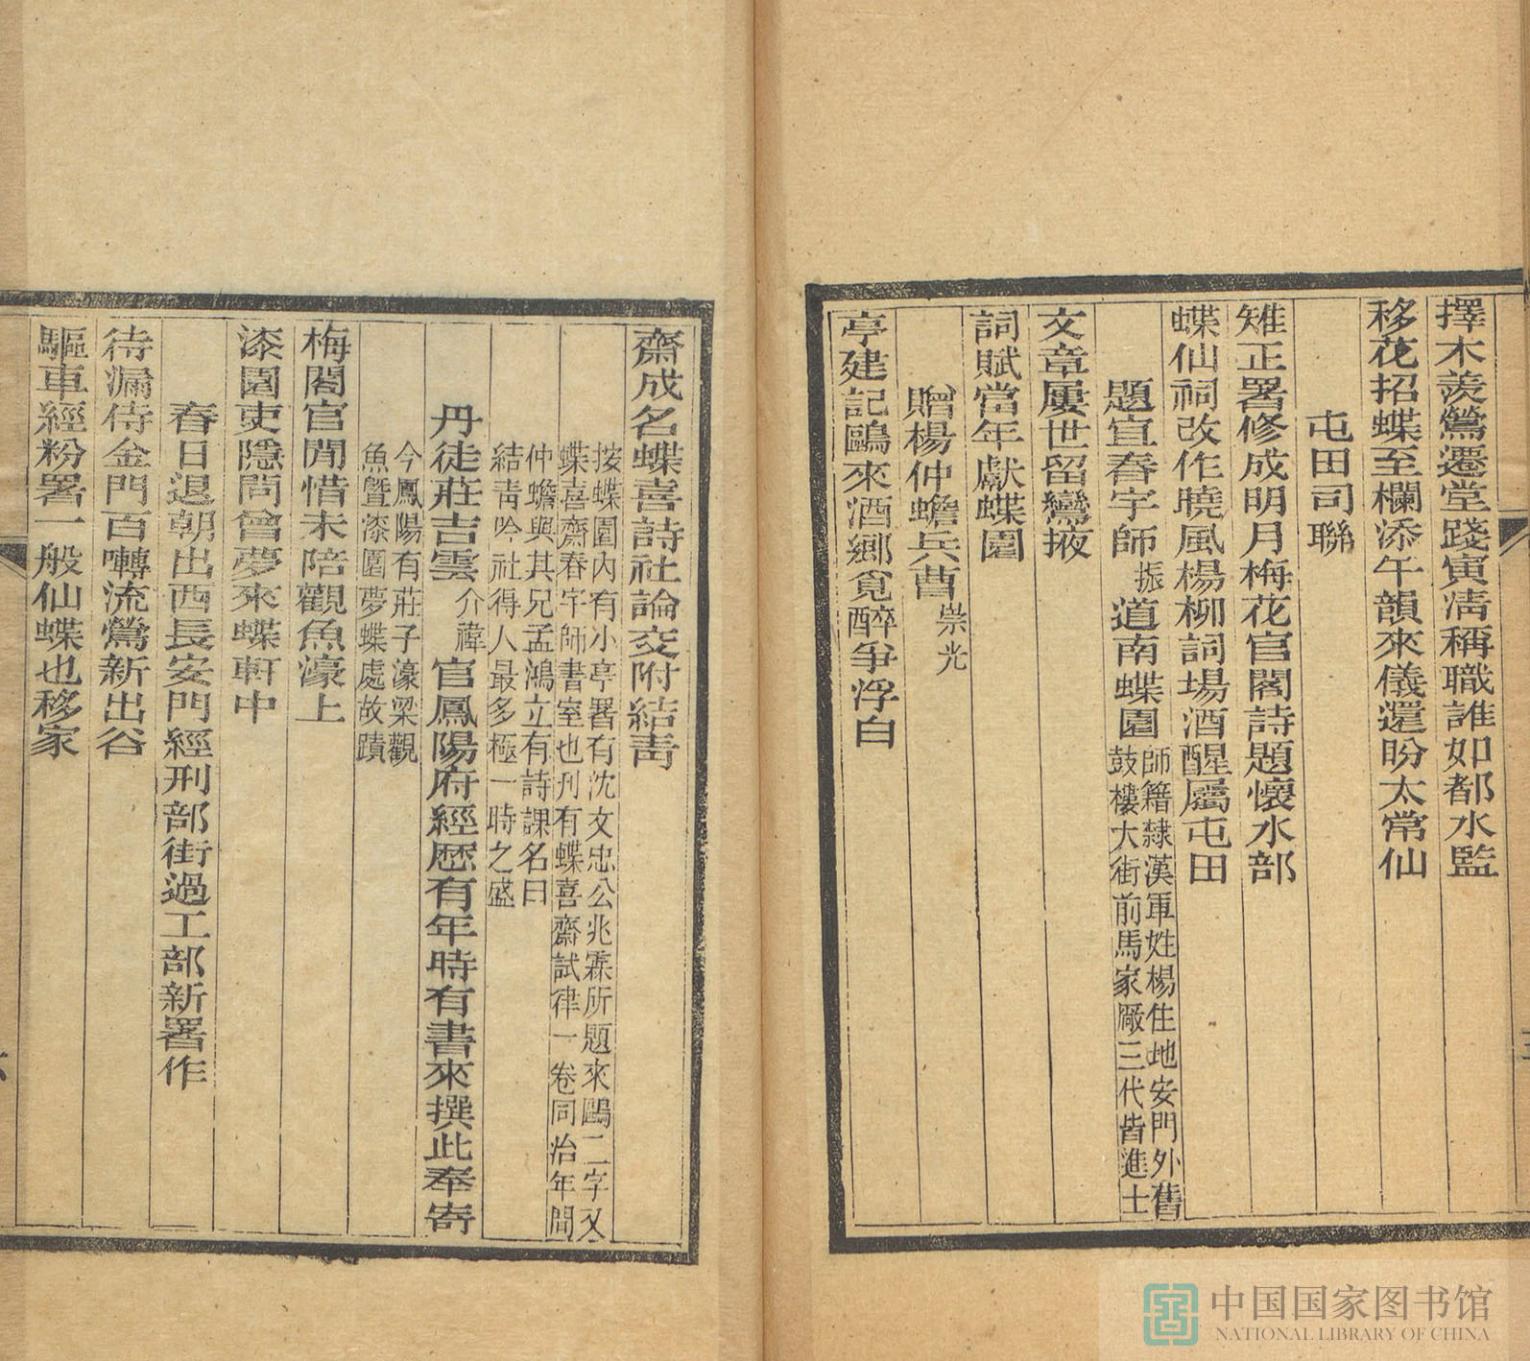 擇木羨鶯遷堂踐寅清稱職誰如都水監
移花招蝶至欄添午韻來儀還盼太常仙
屯田司聯
雉正署修成明月梅花官閣詩題懷水部
蝶仙祠改作曉風楊柳詞場酒醒屬屯田
題宜春宇師振道南蝶園師籍隸漢軍姓楊住地安門外舊
鼓樓大街前馬家厰三代皆進士
文章屢世留鸞掖
詞賦當年獻蝶園
贈楊仲蟾兵曹崇光
亭建記鷗來酒鄉覓醉爭浮白
齋成名蝶喜詩社論交附結青
按蝶園內有小亭署有沈文忠公兆霖所題來鷗二字又
蝶喜齋春宇師書室也刋有蝶喜齋試律一卷同治年間
仲蟾與其兄孟鴻立有詩課名曰
結青吟社得人最多極一時之盛
丹徒莊吉雲介禕官鳳陽府經歷有年時有書來撰此奉寄
今鳳陽有莊子濠梁觀
魚曁漆園夢蝶處故蹟
梅閣官閒惜未陪觀魚濠上
漆園吏隱問曾夢來蝶軒中
春日退朝出西長安門經刑部街過工部新署作
待漏侍金門百囀流鶯新出谷
驅車經粉署一般仙蝶也移家
中国国家图书馆
NATIONAL LIBRARY OF CHINA